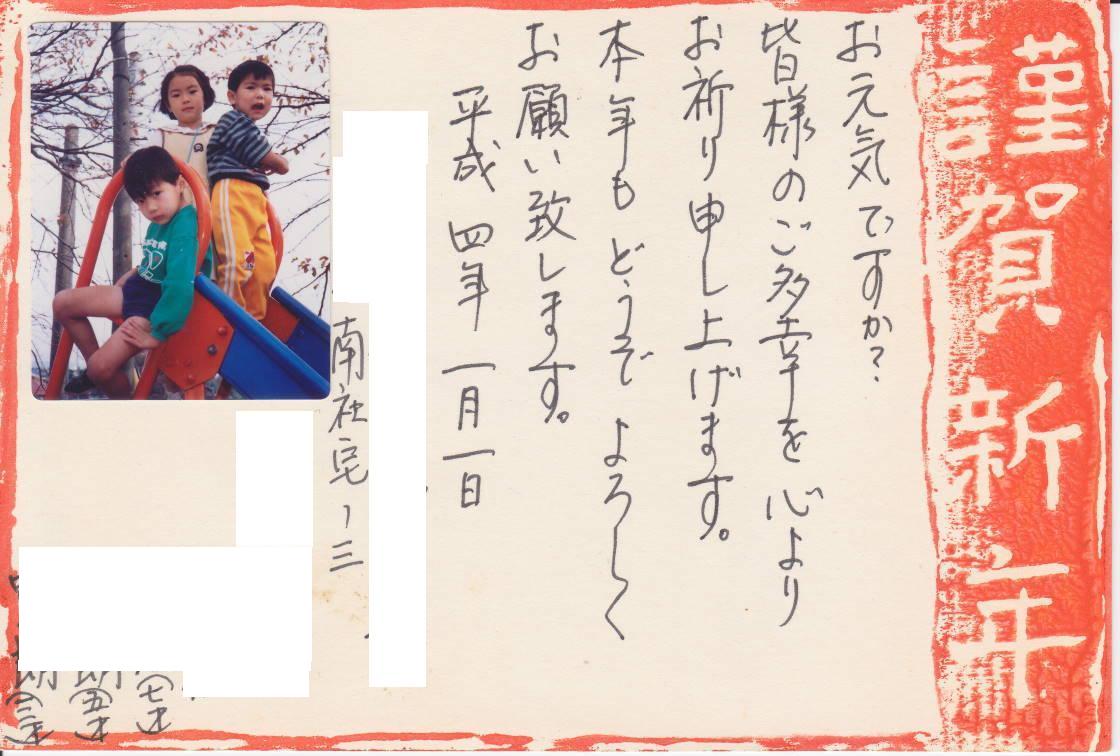 謹賀新年
お元気ですか?
皆様のご多幸を心より
お祈り申し上げます。
本年もどうでよろしく
お願い致します。
平成四年一月一日
南社宅ー三
(七才)
朗(五才)
朗(三才)